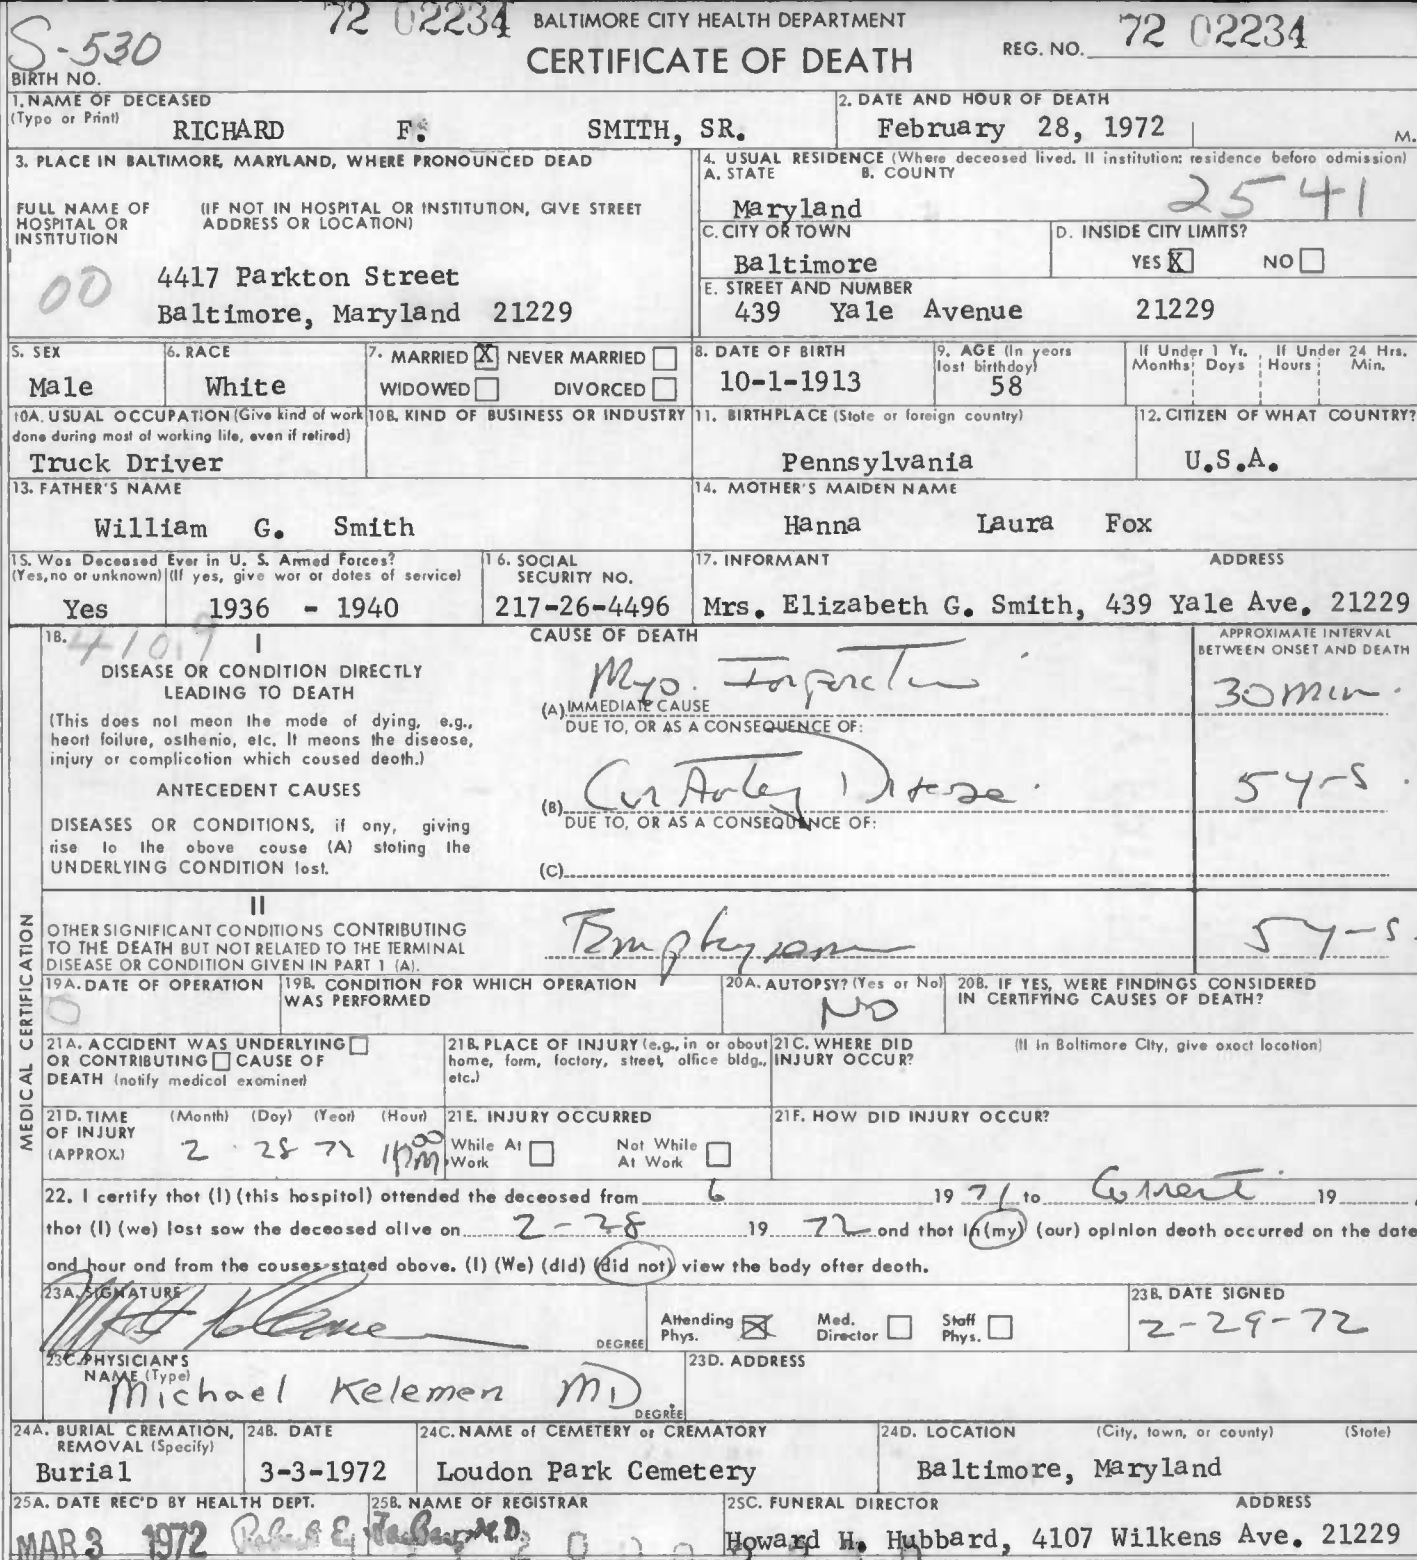 72 02234 BALTIMORE CITY HEALTH DEPARTMENT
S-530 CERTIFICATE OF DEATH REG. NO. 72 02234
BIRTH NO.
1. NAME OF DECEASED
(Type or Print) RICHARD F. SMITH, SR.
2. DATE AND HOUR OF DEATH
February 28, 1972 M.
3. PLACE IN BALTIMORE, MARYLAND, WHERE PRONOUNCED DEAD
FULL NAME OF HOSPITAL OR INSTITUTION
(IF NOT IN HOSPITAL OR INSTITUTION, GIVE STREET ADDRESS OR LOCATION)
00
4417 Parkton Street
Baltimore, Maryland 21229
4. USUAL RESIDENCE (Where deceased lived. If institution: residence before admission)
A. STATE B. COUNTY
Maryland 25 41
C. CITY OR TOWN D. INSIDE CITY LIMITS?
Baltimore YES X NO
E. STREET AND NUMBER
439 Yale Avenue 21229
5. SEX 6. RACE 7. MARRIED X NEVER MARRIED
Male White WIDOWED DIVORCED
8. DATE OF BIRTH
10-1-1913
9. AGE (In years last birthday)
58
If Under 1 Yr. If Under 24 Hrs.
Months Days Hours Min.
10A. USUAL OCCUPATION (Give kind of work
done during most of working life, even if retired)
Truck Driver
10B. KIND OF BUSINESS OR INDUSTRY
11. BIRTHPLACE (State or foreign country)
Pennsylvania
12. CITIZEN OF WHAT COUNTRY?
U.S.A.
13. FATHER'S NAME
William G. Smith
14. MOTHER'S MAIDEN NAME
Hanna Laura Fox
15. Was Deceased Ever in U. S. Armed Forces?
(Yes, no or unknown) (If yes, give war or dates of service)
Yes 1936 - 1940
16. SOCIAL SECURITY NO.
217-26-4496
17. INFORMANT ADDRESS
Mrs. Elizabeth G. Smith, 439 Yale Ave. 21229
MEDICAL CERTIFICATION
18. 410.9 I CAUSE OF DEATH
APPROXIMATE INTERVAL
BETWEEN ONSET AND DEATH
DISEASE OR CONDITION DIRECTLY
LEADING TO DEATH
(This does not mean the mode of dying, e.g.,
heart failure, asthenia, etc. It means the disease,
injury or complication which caused death.)
Myo. Infarction 30 min.
(A) IMMEDIATE CAUSE
DUE TO, OR AS A CONSEQUENCE OF:
ANTECEDENT CAUSES
DISEASES OR CONDITIONS, if any, giving
rise to the above cause (A) stating the
UNDERLYING CONDITION last.
(B) Disease 5 y-s
DUE TO, OR AS A CONSEQUENCE OF:
(C)
II
OTHER SIGNIFICANT CONDITIONS CONTRIBUTING
TO THE DEATH BUT NOT RELATED TO THE TERMINAL
DISEASE OR CONDITION GIVEN IN PART 1 (A).
Emphysema 5 y-s.
19A. DATE OF OPERATION
0
19B. CONDITION FOR WHICH OPERATION
WAS PERFORMED
20A. AUTOPSY? (Yes or No)
NO
20B. IF YES, WERE FINDINGS CONSIDERED
IN CERTIFYING CAUSES OF DEATH?
21A. ACCIDENT WAS UNDERLYING
OR CONTRIBUTING CAUSE OF
DEATH (notify medical examiner)
21B. PLACE OF INJURY (e.g., in or about
home, farm, factory, street, office bldg.,
etc.)
21C. WHERE DID (If in Baltimore City, give exact location)
INJURY OCCUR?
21D. TIME (Month) (Day) (Year) (Hour)
OF INJURY
(APPROX.) 2 28 72
21E. INJURY OCCURRED
While At Work Not While At Work
21F. HOW DID INJURY OCCUR?
22. I certify that (I) (this hospital) attended the deceased from 6 19 71 to Current 19
that (I) (we) last saw the deceased alive on 2-28 19 72 and that in (my) (our) opinion death occurred on the date
and hour and from the causes stated above. (I) (We) (did) (did not) view the body after death.
23A. SIGNATURE
DEGREE
Attending Phys. X Med. Director Staff Phys.
23B. DATE SIGNED
2-29-72
23C. PHYSICIAN'S
NAME (Type) Michael Kelemen MD
DEGREE
23D. ADDRESS
24A. BURIAL CREMATION,
REMOVAL (Specify)
Burial
24B. DATE
3-3-1972
24C. NAME of CEMETERY or CREMATORY
Loudon Park Cemetery
24D. LOCATION (City, town, or county) (State)
Baltimore, Maryland
25A. DATE REC'D BY HEALTH DEPT.
MAR 3 1972
25B. NAME OF REGISTRAR
Robert E. Farber, M.D.
25C. FUNERAL DIRECTOR ADDRESS
Howard H. Hubbard, 4107 Wilkens Ave. 21229